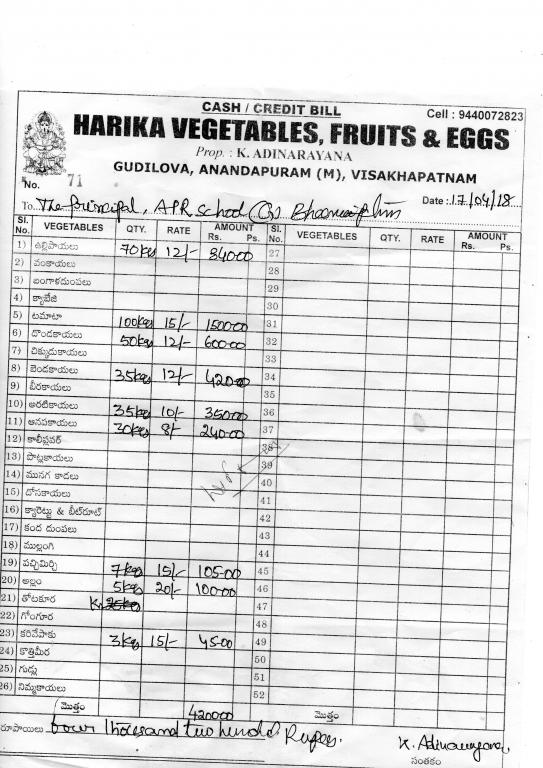 CASH / CREDIT BILL
Cell : 9440072823
HARIKA VEGETABLES, FRUITS & EGGS
Prop. : K. ADINARAYANA
GUDILOVA, ANANDAPURAM (M), VISAKHAPATNAM
No. 71
Date : 17/04/18
To. The principal, APR school
Sl. No. VEGETABLES QTY. RATE AMOUNT Rs. Ps. Sl. No. VEGETABLES QTY. RATE AMOUNT Rs. Ps.
1) ఉల్లిపాయలు 70kg 12/- 840=00 27
2) వంకాయలు 28
3) బంగాళదుంపలు 29
4) క్యాబేజి 30
5) టమాటా 100kg 15/- 1500=00 31
6) దొండకాయలు 50kg 12/- 600=00 32
7) చిక్కుడుకాయలు 33
8) బెండకాయలు 35kg 12/- 420=00 34
9) బీరకాయలు 35
10) అరటికాయలు 35kg 10/- 350=00 36
11) ఆనపకాయలు 30kg 8/- 240=00 37
12) కాలీఫ్లవర్ 38
13) పొట్లకాయలు 39
14) మునగ కాడలు 40
15) దోసకాయలు 41
16) క్యారెట్లు & బీట్‌రూట్ 42
17) కంద దుంపలు 43
18) ముల్లంగి 44
19) పచ్చిమిర్చి 7kg 15/- 105=00 45
20) అల్లం 5kg 20/- 100=00 46
21) తోటకూర 47
22) గోంగూర 48
23) కరివేపాకు 3kg 15/- 45=00 49
24) కొత్తిమీర 50
25) గుడ్లు 51
26) నిమ్మకాయలు 52
మొత్తం 4200=00 మొత్తం
రూపాయలు four thousand two hundred Rupees.
K. Adinarayana
సంతకం